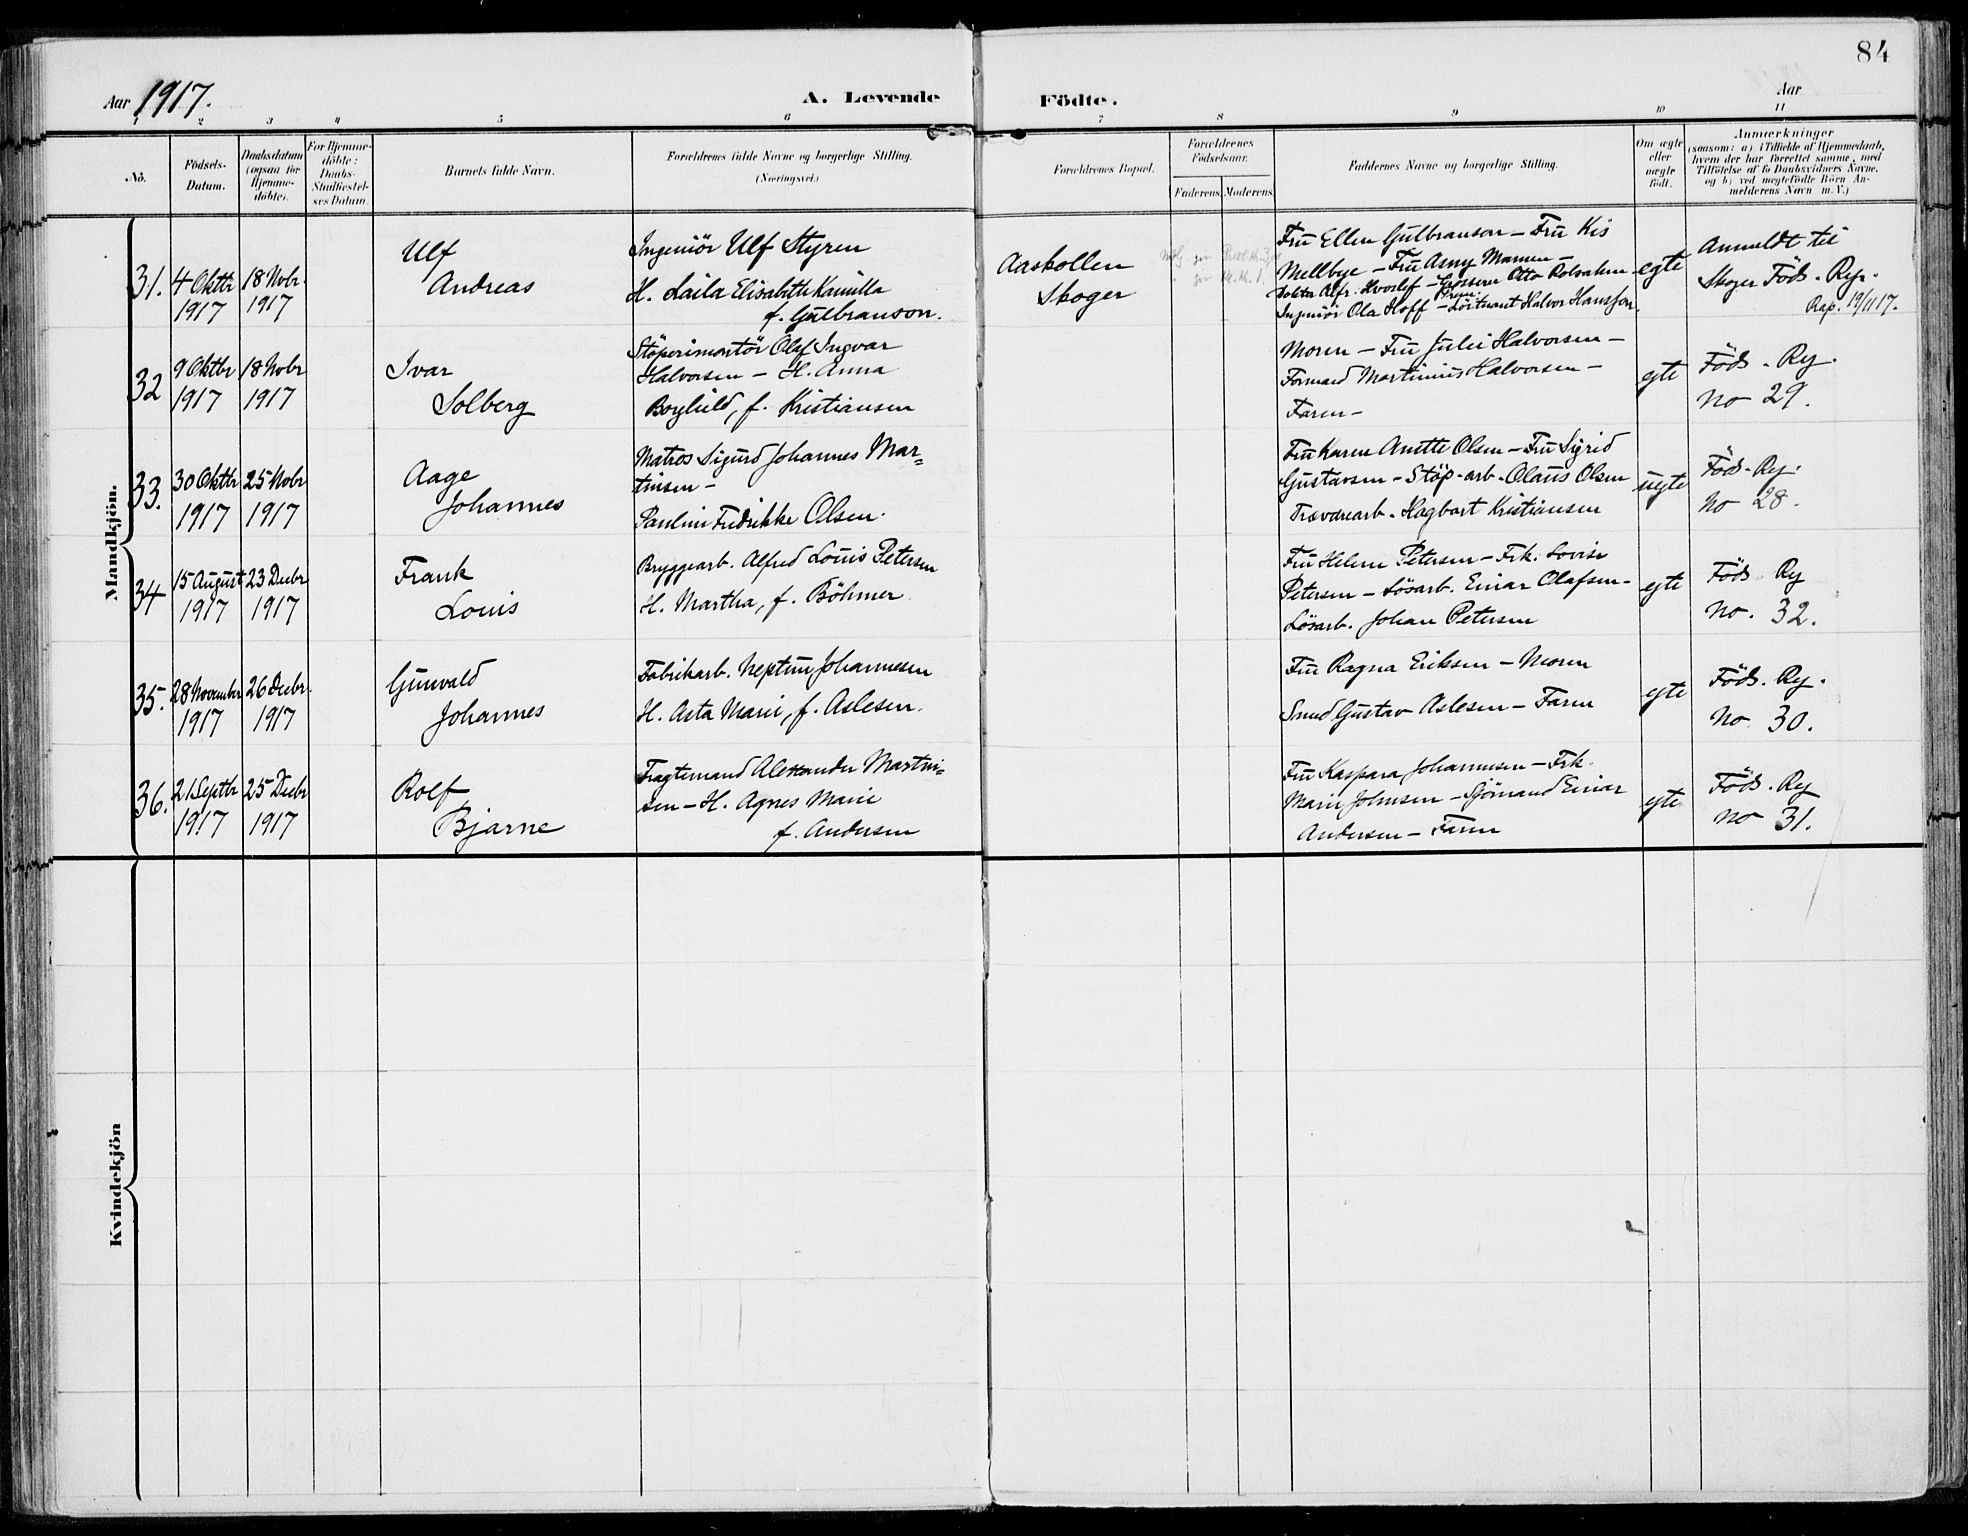 84
Aar 1917.
A. Levende
Födte.
Aar
1 2 3 4 5 6 7 8 9 10 11
No.
Födsels-
Datum.
Daabsdatum
(ogsaa for
Hjemme-
döbte).
For Hjemme-
döbte:
Daabs-
Stadfæstel-
ses Datum.
Barnets fulde Navn.
Forældrenes fulde Navne og borgerlige Stilling.
(Næringsvei.)
Forældrenes Bopæl.
Forældrenes
Födselsaar.
Faderens. Moderens.
Faddernes Navne og borgerlige Stilling.
Om ægte
eller
uægte
födt.
Anmærkninger
(saasom: a) i Tilfælde af Hjemmedaab,
hvem der har forrettet samme, med
Tilföielse af to Daabsvidners Navne,
og b) ved uægtefödte Börn An-
melderens Navn m. V.)
Mandkjön.
31.
4 Oktbr
1917
18 Novbr
1917
Ulf
Andreas
Ingeniör Ulf Styren
H. Laila Elisabeth Kamilla
f. Gulbranson.
Aaskollen
Skoger
Fru Ellen Gulbranson – Fru Kis
Mellbye – Fru Asny Mamen –
Doktor Alfr. Hvoslef – Grosserer Otto
Ingeniör Ola Hoff – Löitnant Halvor Hansson.
egte
Anmeldt til
Skoger Föds. Reg.
Rap. 19/11 17.
32
9 Oktbr
1917
18 Novbr
1917
Ivar
Solberg
Stöperimontör Olaf Ingvar
Halvorsen – H. Anna
Boghild, f. Kristiansen
Moren – Fru Julie Halvorsen –
Formand Martinius Halvorsen –
Faren –
egte
Föds. Reg.
No 29.
33.
30 Oktbr
1917
25 Novbr
1917
Aage
Johannes
Matros Sigurd Johannes Mar=
tinsen –
Pauline Fredrikke Olsen.
Fru Karen Anette Olsen – Fru Sigrid
Gustavsen – Stöp-arb. Olaus Olsen
Trævarearb. Hagbart Kristiansen
uegte
Föds. Reg.
No 28.
34
15 August
1917
23 Decbr
1917
Frank
Louis
Bryggearb. Alfred Louis Petersen
H. Martha, f. Böhmer
Fru Helene Petersen – Frk. Lovise
Petersen – Lösarb. Einar Olafsen –
Lösarb. Johan Petersen
egte
Föds Reg
No. 32.
35.
28 November
1917
26 Decbr.
1917
Gunvald
Johannes
Fabrikarb. Neptun Johannesen
H. Asta Marie, f. Aslesen.
Fru Ragna Eriksen – Moren
Smed Gustav Aslesen – Faren
egte
Föds. Reg.
No 30.
36.
21 Septbr
1917
25 Decbr
1917
Rolf
Bjarne
Fragtemand Alexander Martin-
sen – H. Agnes Marie
f. Andersen
Fru Kaspara Johannesen – Frk.
Marie Johnsen – Sjömand Einar
Andersen – Faren
egte
Föds. Reg
No 31.
Kvindekjön